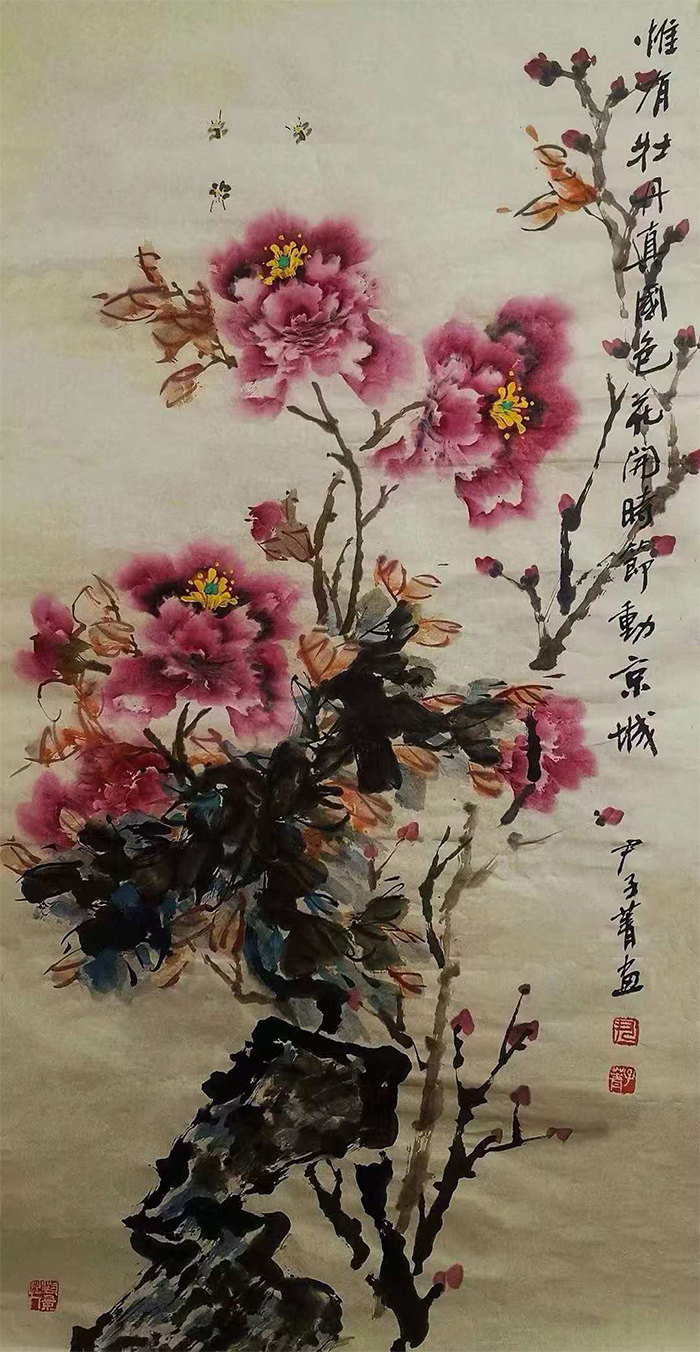 惟有牡丹真國色花開時節動京城
尹子菁画